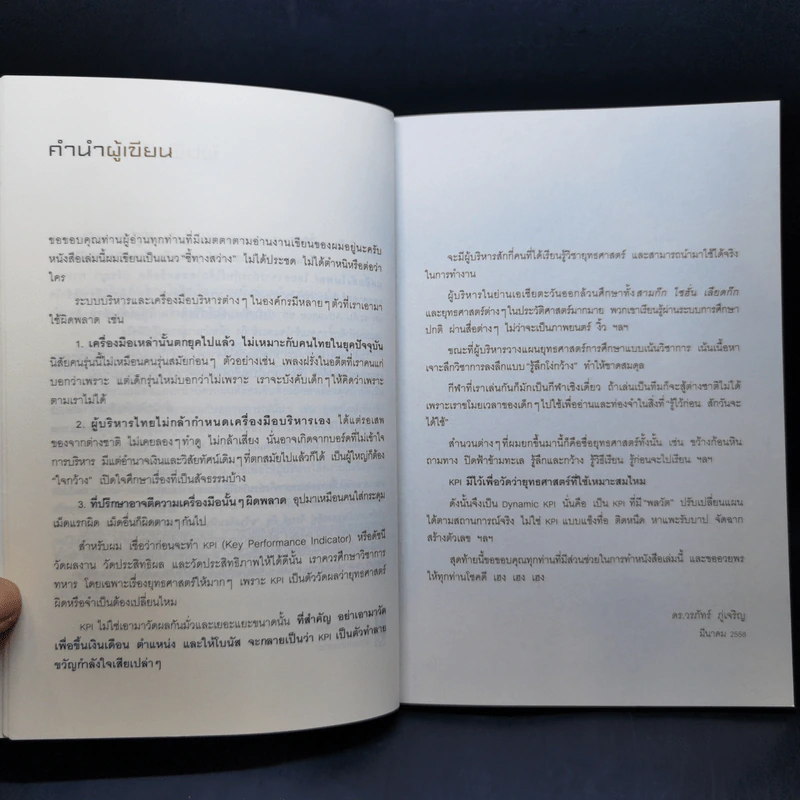 คำนำผู้เขียน
ขอขอบคุณท่านผู้อ่านทุกท่านที่มีเมตตาตามอ่านงานเขียนของผมอยู่นะครับ
หนังสือเล่มนี้ผมเขียนเป็นแนว "ชี้ทางสว่าง" ไม่ได้ประชด ไม่ได้ตำหนิหรือต่อว่า
ใคร
ระบบบริหารและเครื่องมือบริหารต่างๆ ในองค์กรมีหลายๆ ตัวที่เราเอามา
ใช้ผิดพลาด เช่น
1. เครื่องมือเหล่านั้นตกยุคไปแล้ว ไม่เหมาะกับคนไทยในยุคปัจจุบัน
นิสัยคนรุ่นนี้ไม่เหมือนคนรุ่นสมัยก่อนๆ ตัวอย่างเช่น เพลงฝรั่งในอดีตที่เราคนแก่
บอกว่าเพราะ แต่เด็กรุ่นใหม่บอกว่าไม่เพราะ เราจะบังคับเด็กๆ ให้คิดว่าเพราะ
ตามเราไม่ได้
2. ผู้บริหารไทยไม่กล้ากำหนดเครื่องมือบริหารเอง ได้แต่รอเสพ
ของจากต่างชาติ ไม่เคยลองๆ ทำดู ไม่กล้าเสี่ยง นั่นอาจเกิดจากบอร์ดที่ไม่เข้าใจ
การบริหาร มีแต่อำนาจเงินและวิสัยทัศน์เดิมๆ ที่ตกสมัยไปแล้วก็ได้ เป็นผู้ใหญ่ก็ต้อง
"ใจกว้าง" เปิดใจศึกษาเรื่องที่เป็นสัจธรรมบ้าง
3. ที่ปรึกษาอาจตีความเครื่องมือนั้นๆ ผิดพลาด อุปมาเหมือนคนใส่กระดุม
เม็ดแรกผิด เม็ดอื่นก็ผิดตามๆ กันไป
สำหรับผม เชื่อว่าก่อนจะทำ KPI (Key Performance Indicator) หรือดัชนี
วัดผลงาน วัดประสิทธิผล และวัดประสิทธิภาพให้ได้ดีนั้น เราควรศึกษาวิชาการ
ทหาร โดยเฉพาะเรื่องยุทธศาสตร์ให้มากๆ เพราะ KPI เป็นตัววัดผลว่ายุทธศาสตร์
ผิดหรือจำเป็นต้องเปลี่ยนไหม
KPI ไม่ใช่เอามาวัดผลกันมั่วและเยอะแยะขนาดนั้น ที่สำคัญ อย่าเอามาวัด
เพื่อขึ้นเงินเดือน ตำแหน่ง และให้โบนัส จะกลายเป็นว่า KPI เป็นตัวทำลาย
ขวัญกำลังใจเสียเปล่าๆ
จะมีผู้บริหารสักกี่คนที่ได้เรียนรู้วิชายุทธศาสตร์ และสามารถนำมาใช้ได้จริง
ในการทำงาน
ผู้บริหารในย่านเอเชียตะวันออกล้วนศึกษาทั้ง สามก๊ก ไซฮั่น เลียดก๊ก
และยุทธศาสตร์ต่างๆ ในประวัติศาสตร์มากมาย พวกเขาเรียนรู้ผ่านระบบการศึกษา
ปกติ ผ่านสื่อต่างๆ ไม่ว่าจะเป็นภาพยนตร์ งิ้ว ฯลฯ
ขณะที่ผู้บริหารวางแผนยุทธศาสตร์การศึกษาแบบเน้นวิชาการ เน้นเนื้อหา
เจาะลึกวิชาการลงลึกแบบ "รู้ลึกโง่กว้าง" ทำให้ขาดสมดุล
กีฬาที่เราเล่นกันก็มักเป็นกีฬาเชิงเดี่ยว ถ้าเล่นเป็นทีมก็จะสู้ต่างชาติไม่ได้
เพราะเราขโมยเวลาของเด็กๆ ไปใช้เพื่ออ่านและท่องจำในสิ่งที่ "รู้ไว้ก่อน สักวันจะ
ได้ใช้"
สำนวนต่างๆ ที่ผมยกขึ้นมานี้ก็คือชื่อยุทธศาสตร์ทั้งนั้น เช่น ขว้างก้อนหิน
ถามทาง ปิดฟ้าข้ามทะเล รู้ลึกและกว้าง รู้วิธีเรียน รู้ก่อนจะไปเรียน ฯลฯ
KPI มีไว้เพื่อวัดว่ายุทธศาสตร์ที่ใช้เหมาะสมไหม
ดังนั้นจึงเป็น Dynamic KPI นั่นคือ เป็น KPI ที่มี "พลวัต" ปรับเปลี่ยนแผน
ได้ตามสถานการณ์จริง ไม่ใช่ KPI แบบแข็งทื่อ ติดหนึด หาแพะรับบาป จัดฉาก
สร้างตัวเลข ฯลฯ
สุดท้ายนี้ขอขอบคุณทุกท่านที่มีส่วนช่วยในการทำหนังสือเล่มนี้ และขออวยพร
ให้ทุกท่านโชคดี เฮง เฮง เฮง
ดร.วรภัทร์ ภู่เจริญ
มีนาคม 2558